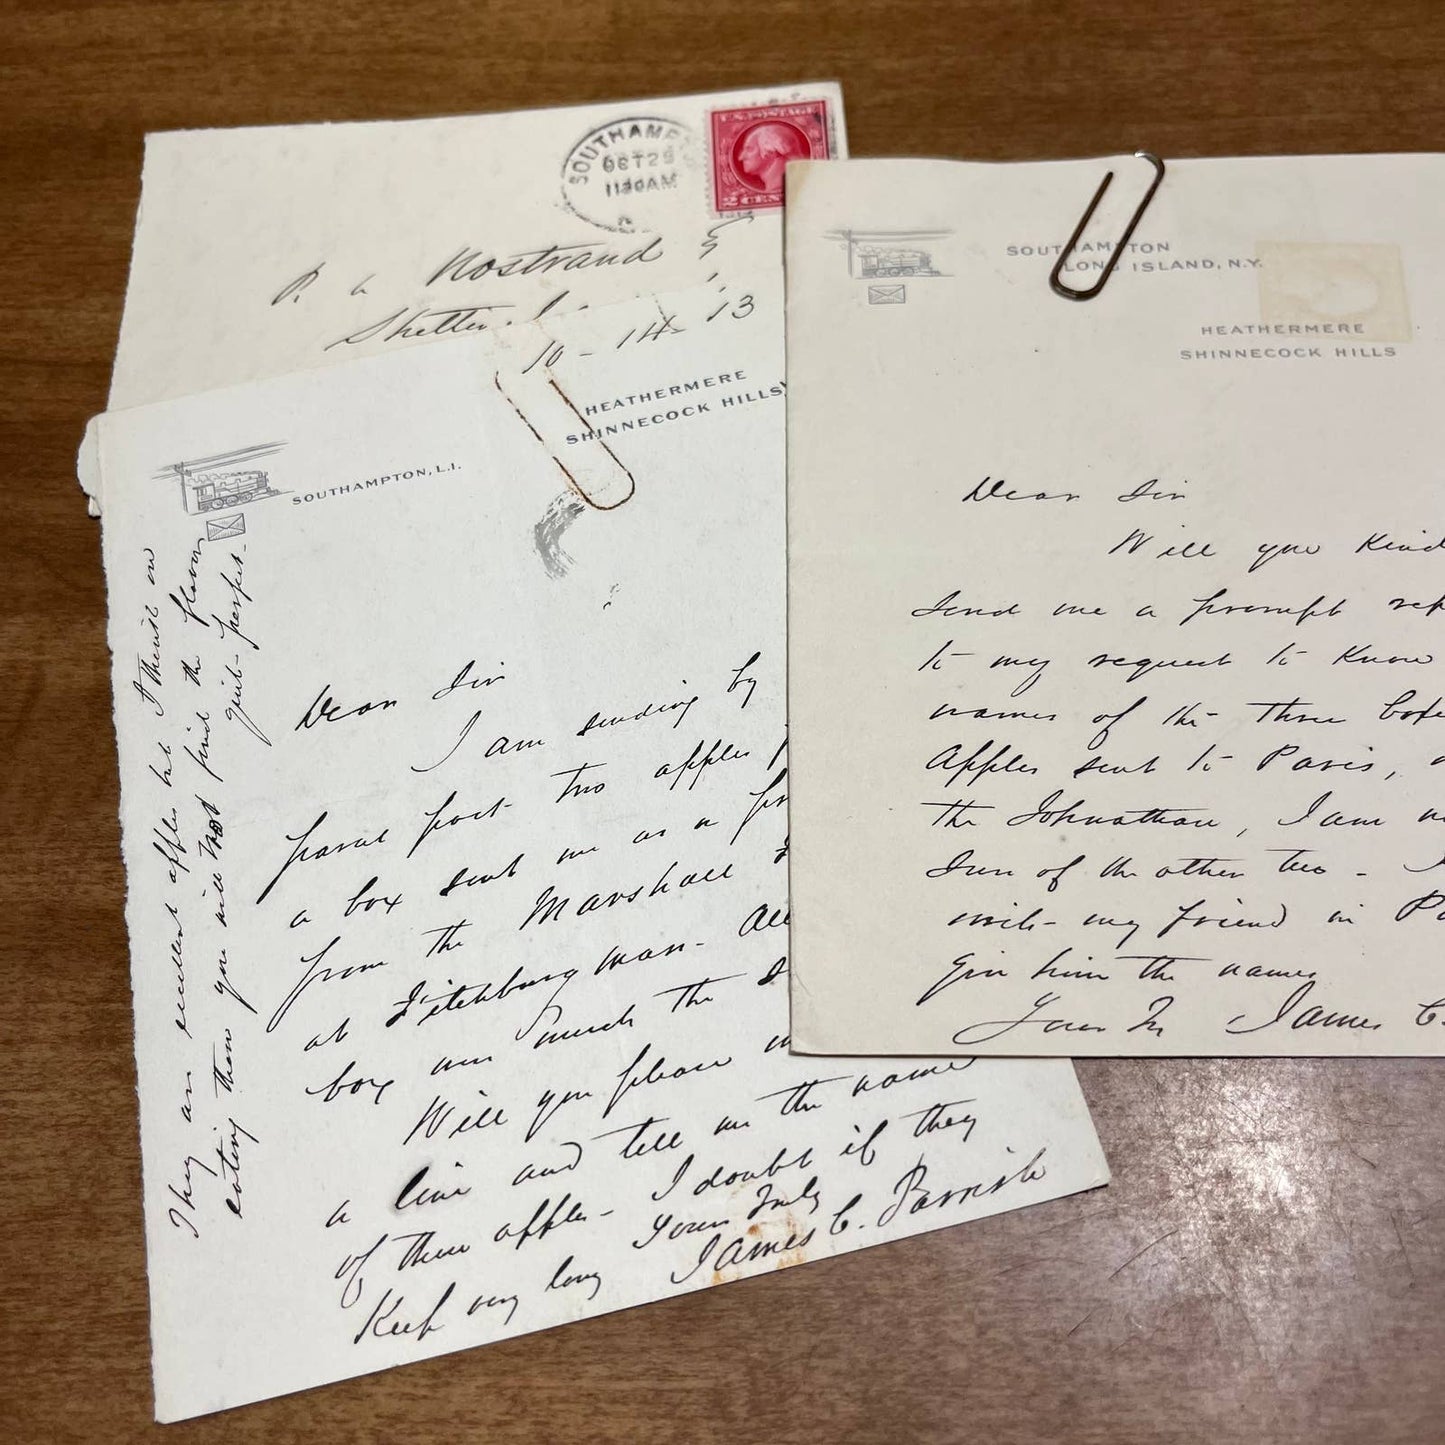 U.S. POSTAGE
2 CEN
SOUTHAMP
OCT 29
1130AM
Nostrand
Shelter
10-14-13
HEATHERMERE
SHINNECOCK HILLS
SOUTHAMPTON, L.I.
Dear Sir
I am sending by
parcel post two apples
a box sent me as a
from the Marshall
at Fitchburg Mass. All
box was much the
Will you please
a line and tell me the name
of these apples - I doubt if they
Keep very long Yours Truly
James C. Parrish
They are excellent apples but I think on
eating them you will not find the flavor
quite perfect-
SOUTHAMPTON
LONG ISLAND, N.Y.
HEATHERMERE
SHINNECOCK HILLS
Dear Sir
Will you kind
Send me a prompt rep
to my request to Know
names of the three boxe
Apples sent to Paris,
the Johnathan, I am n
Sure of the other two -
wish my friend in Pa
Give him the names
Yours Tr James C.